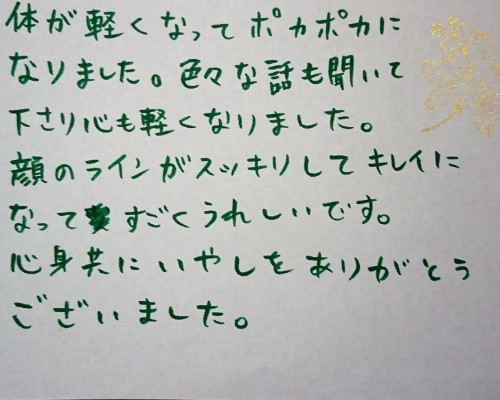 体が軽くなってポカポカに
なりました。色々な話も聞いて
下さり心も軽くなりました。
顔のラインがスッキリしてキレイに
なってすごくうれしいです。
心身共にいやしをありがとう
ございました。